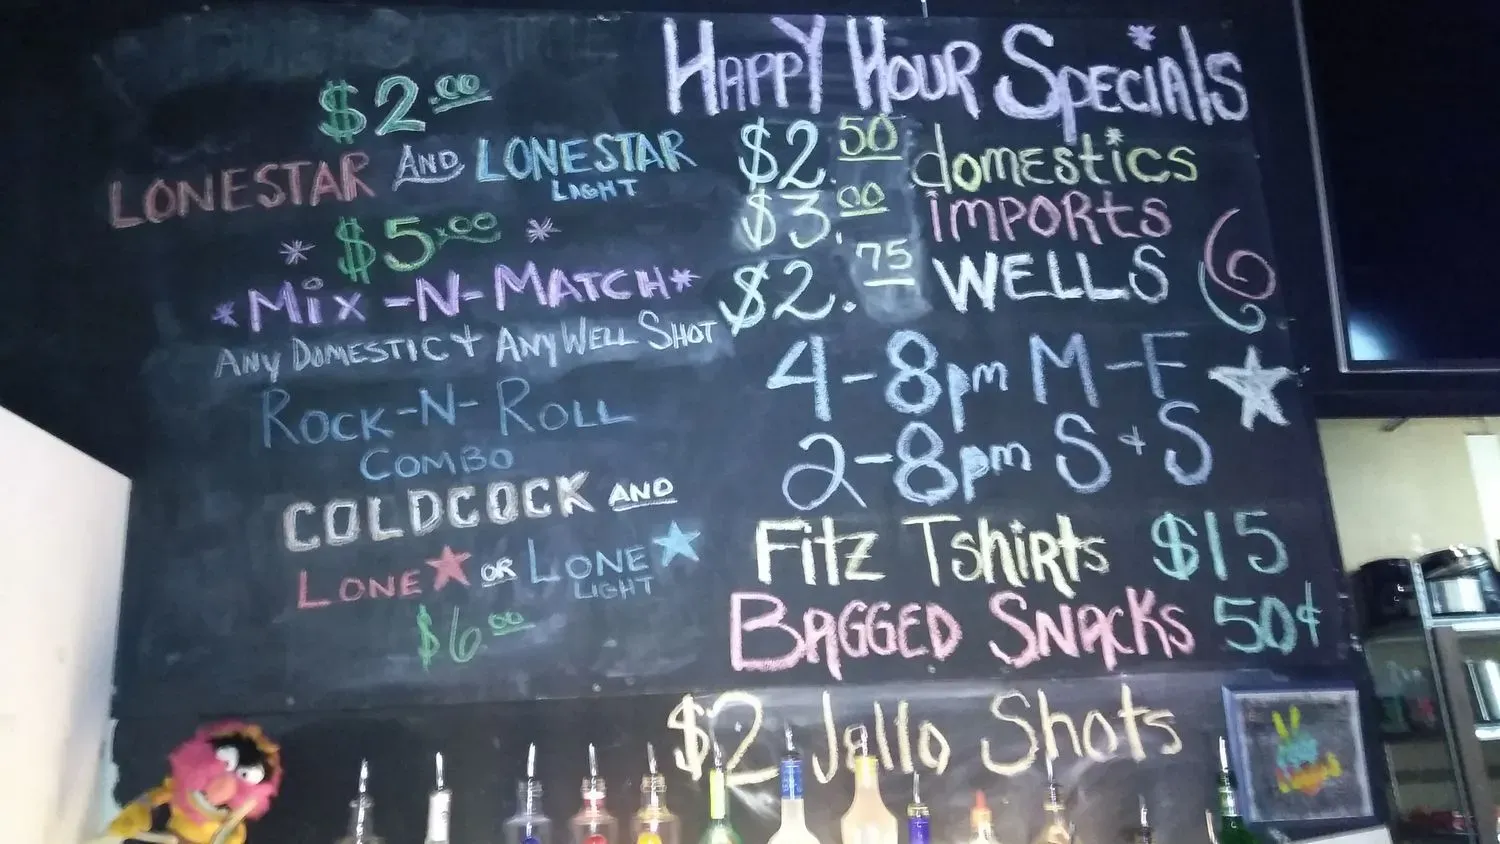 $2.00
LONESTAR AND LONESTAR
LIGHT
* $5.00 *
*Mix-N-MATCH*
ANY DOMESTIC + ANY WELL SHOT
ROCK-N-ROLL
COMBO
COLDCOCK AND
LONE★ OR LONE★
LIGHT
$6.00
HAPPY HOUR SPECIALS
$2.50 domestics
$3.00 imports
$2.75 WELLS
4-8pm M-F
2-8pm S+S
Fitz Tshirts $15
BAGGED SNACKS 50¢
$2 Jello Shots